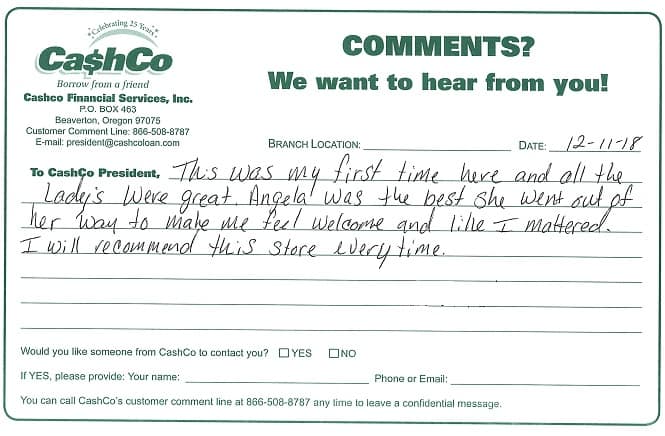 Celebrating 25 Years
Ca$hCo
Borrow from a friend
Cashco Financial Services, Inc.
P.O. BOX 463
Beaverton, Oregon 97075
Customer Comment Line: 866-508-8787
E-mail: president@cashcoloan.com
COMMENTS?
We want to hear from you!
BRANCH LOCATION: DATE: 12-11-18
To Ca$hCo President, This was my first time here and all the
Ladej's were great. Angela was the best she went out of
her way to make me feel welcome and like I mattered.
I will recommend this store everytime.
Would you like someone from CashCo to contact you? YES NO
If YES, please provide: Your name: Phone or Email:
You can call CashCo's customer comment line at 866-508-8787 any time to leave a confidential message.